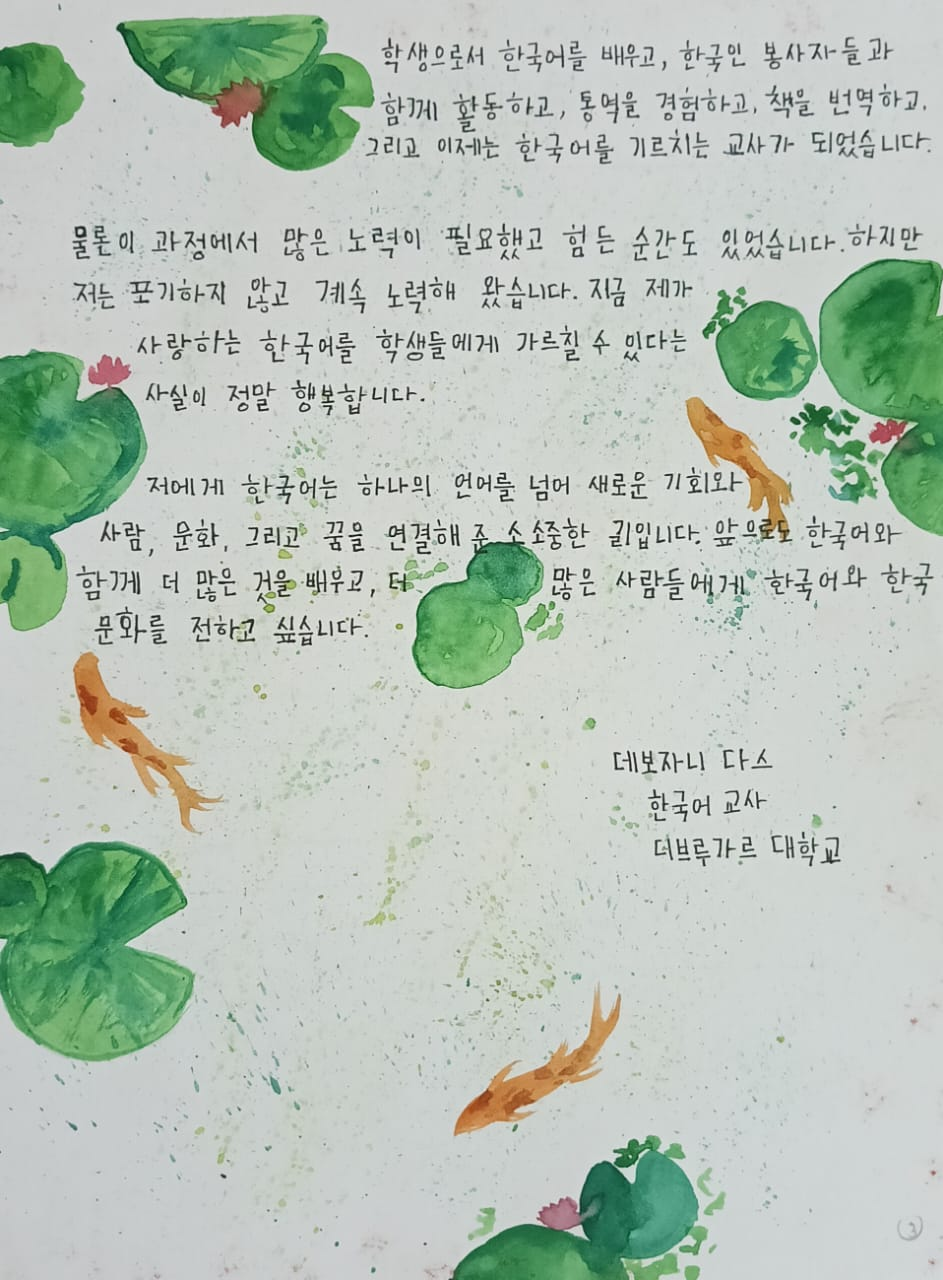 학생으로서 한국어를 배우고, 한국인 봉사자들과
함께 활동하고, 통역을 경험하고, 책을 번역하고,
그리고 이제는 한국어를 기르치는 교사가 되었습니다.
물론이 과정에서 많은 노력이 필요했고 힘든 순간도 있었습니다. 하지만
저는 포기하지 않고 계속 노력해 왔습니다. 지금 제가
사랑하는 한국어를 학생들에게 가르칠 수 있다는
사실이 정말 행복합니다.
저에게 한국어는 하나의 언어를 넘어 새로운 기회와
사람, 문화, 그리고 꿈을 연결해 준 소소중한 길입니다. 앞으로도 한국어와
함께 더 많은 것을 배우고, 더 많은 사람들에게 한국어와 한국
문화를 전하고 싶습니다.
데보자니 다스
한국어 교사
디브루가르 대학교
3